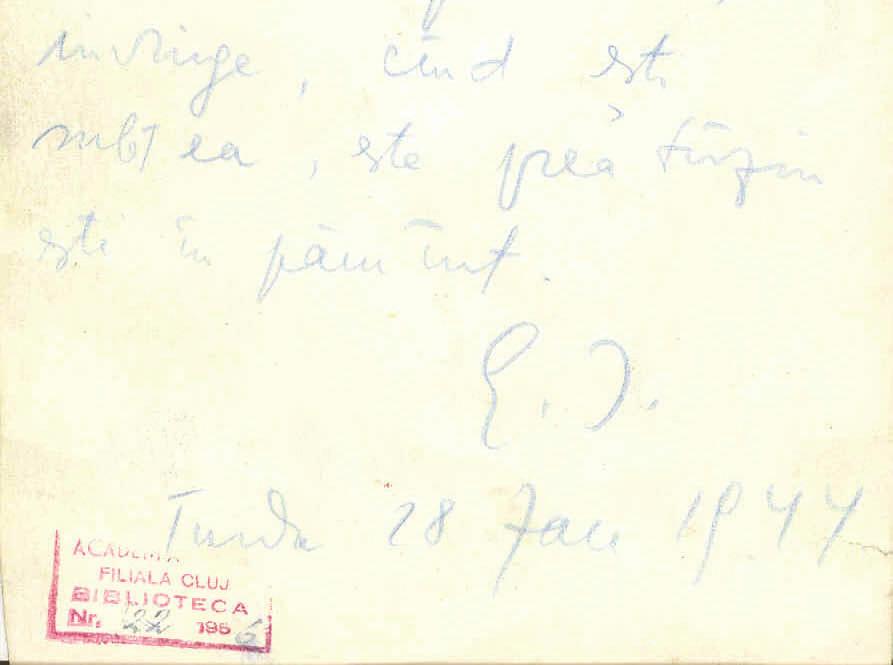 învinge, cînd ești
subt ea, este prea tîrziu
ești în pămînt.
E. I.
Turda 28 Jan 1944
ACADEMIA
FILIALA CLUJ
BIBLIOTECA
Nr. 22 1956